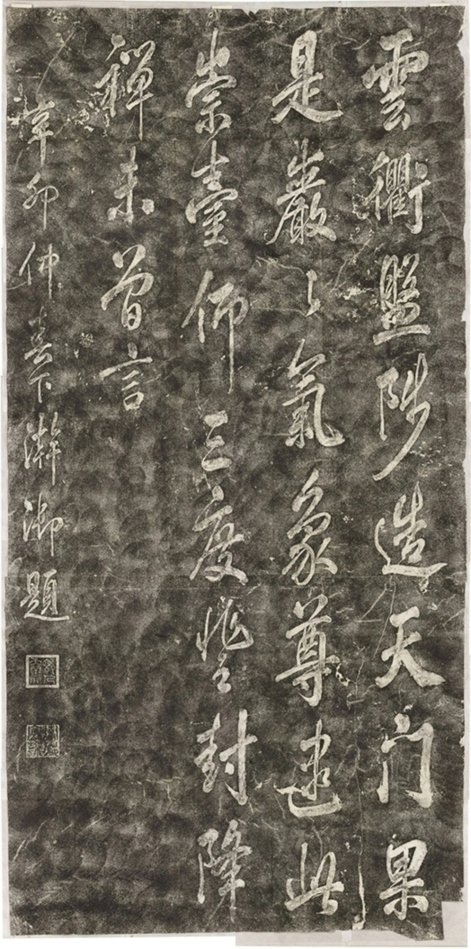 雲衢盤陟造天门果
是巖〻氣象尊逮此
崇臺仰三度登封降
禪未曾言
辛卯仲春下澣御題